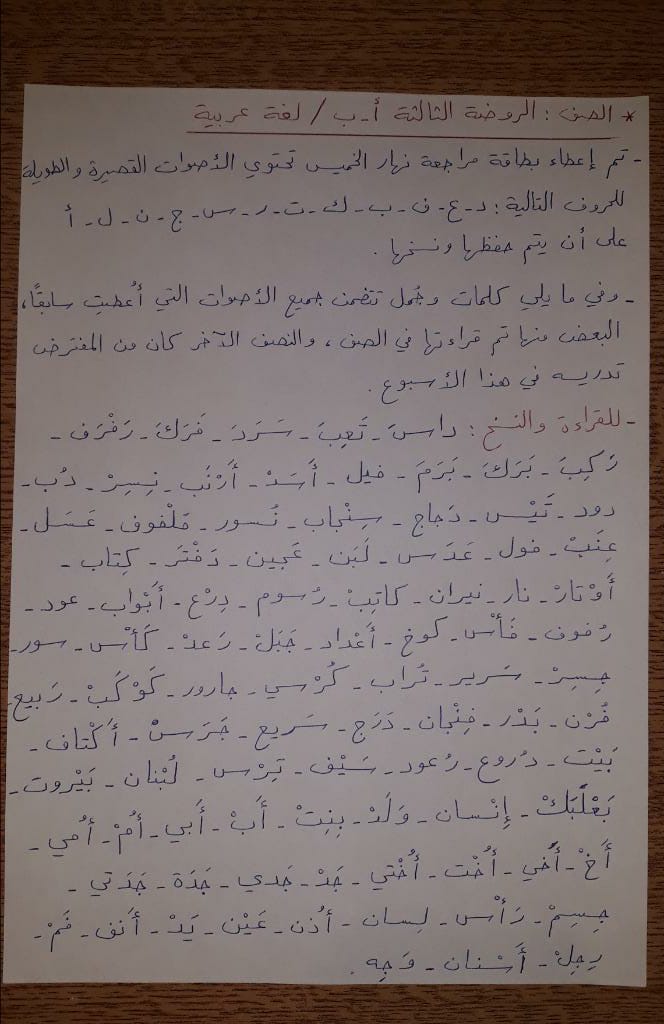 * الصف : الروضة الثالثة أ-ب / لغة عربية
- تم إعطاء بطاقة مراجعة نهار الخميس تحتوي الأصوات القصيرة والطويلة
للحروف التالية : د - ع - ف - ب - ك - ت - ر - س - ج - ن - ل - أ
على أن يتم حفظها ونسخها .
- وفي ما يلي كلمات وجُمل تتضمن جميع الأصوات التي أُعطيت سابقًا،
البعض منها تم قراءتها في الصف ، والنصف الآخر كان من المفترض
تدريسه في هذا الأسبوع .
- للقراءة والنسخ : داسَ - تَعِبَ - سَرَدَ - فَرَكَ - رَفْرَف -
رَكِبَ - بَرَكَ - بَرَمَ - فيل - أَسَدْ - أَرْنَب - نِسِرْ - دُب -
دود - تَيْس - دَجاج - سِنْجاب - نُسور - مَلْفوف - عَسَل -
عِنَبْ - فول - عَدَس - لَبَن - عَجين - دَفْتَر - كِتاب -
أَوْتارْ - نار - نيران - كاتِبْ - رُسوم - دِرْع - أَبْواب - عود -
رُفوف - فَأْس - كوخ - أَعْداد - جَبَلْ - رَعدْ - كَأْس - سور -
جِسِرْ - سَرير - تُراب - كُرْسي - جارور - كَوْكَبْ - رَبيع -
فُرْن - بَدْر - فِنْجان - دَرَج - سَريع - جَرَسْ - أَكْتاف -
بَيْت - دُروع - رُعود - سَيْف - تِرْس - لُبْنان - بَيْروت -
بَعْلَبَكْ - إِنْسان - وَلَدْ - بِنِتْ - أَبْ - أَبي - أُمْ - أُمي -
أَخْ - أَخي - أُخْت - أُخْتي - جَدْ - جَدي - جَدَة - جَدَتي -
جِسِمْ - رَأْس - لِسان - أُذن - عَيْن - يَدْ - أَنف - فَمْ -
رِجِلْ - أَسْنان - وَجِه .